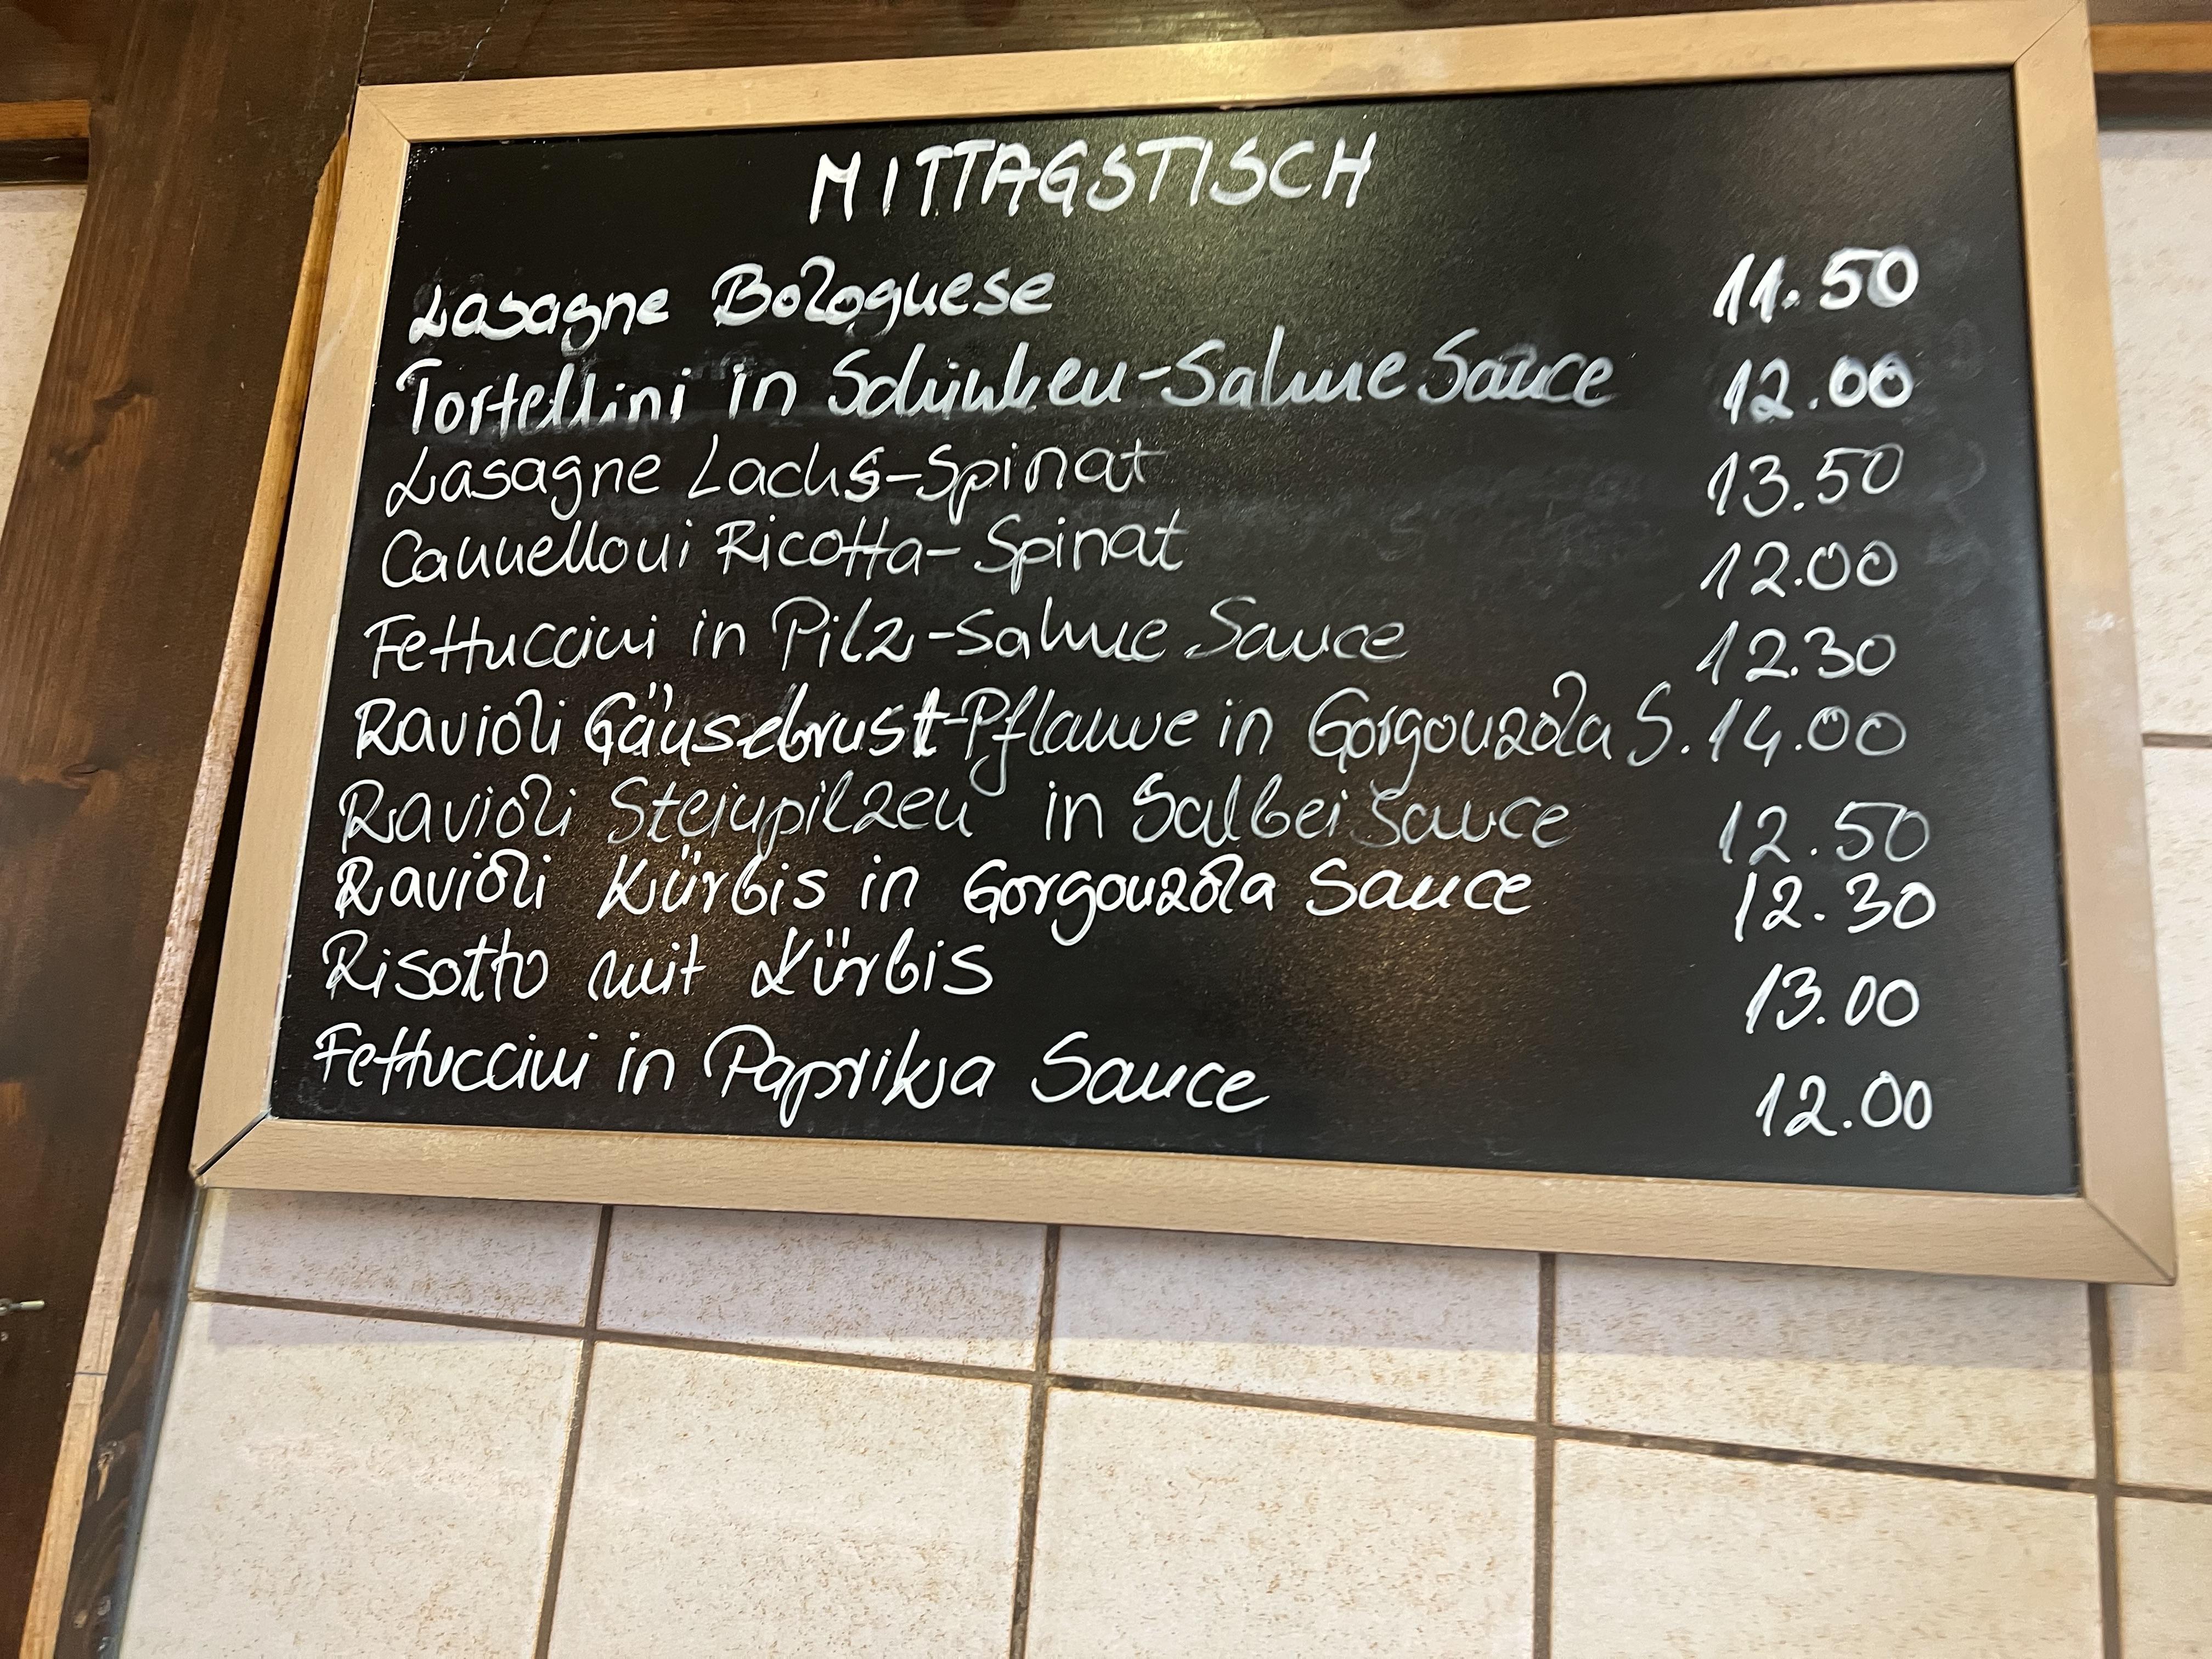 MITTAGSTISCH
Lasagne Bolognese 11.50
Tortellini in Schinken-Sahne Sauce 12.00
Lasagne Lachs-Spinat 13.50
Cannelloni Ricotta-Spinat 12.00
Fettuccini in Pilz-Sahne Sauce 12.30
Ravioli Gänsebrust-Pflaume in Gorgonzola S. 14.00
Ravioli Steinpilzen in Salbei Sauce 12.50
Ravioli Kürbis in Gorgonzola Sauce 12.30
Risotto mit Kürbis 13.00
Fettuccini in Paprika Sauce 12.00